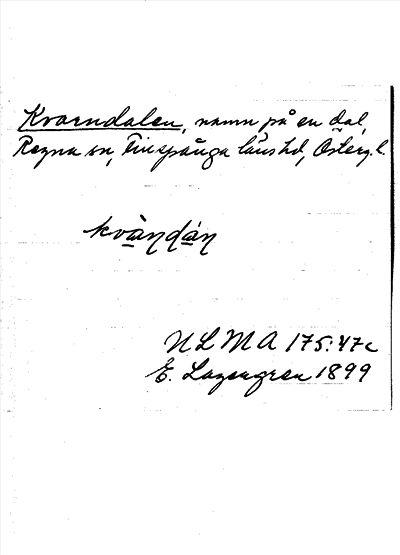 Kvarndalen, namn på en dal,
Regna sn, Finspånga läns hd, Österg. l.
kvàṇdáṇ
ULMA 175:47c
E. Lagengren 1899